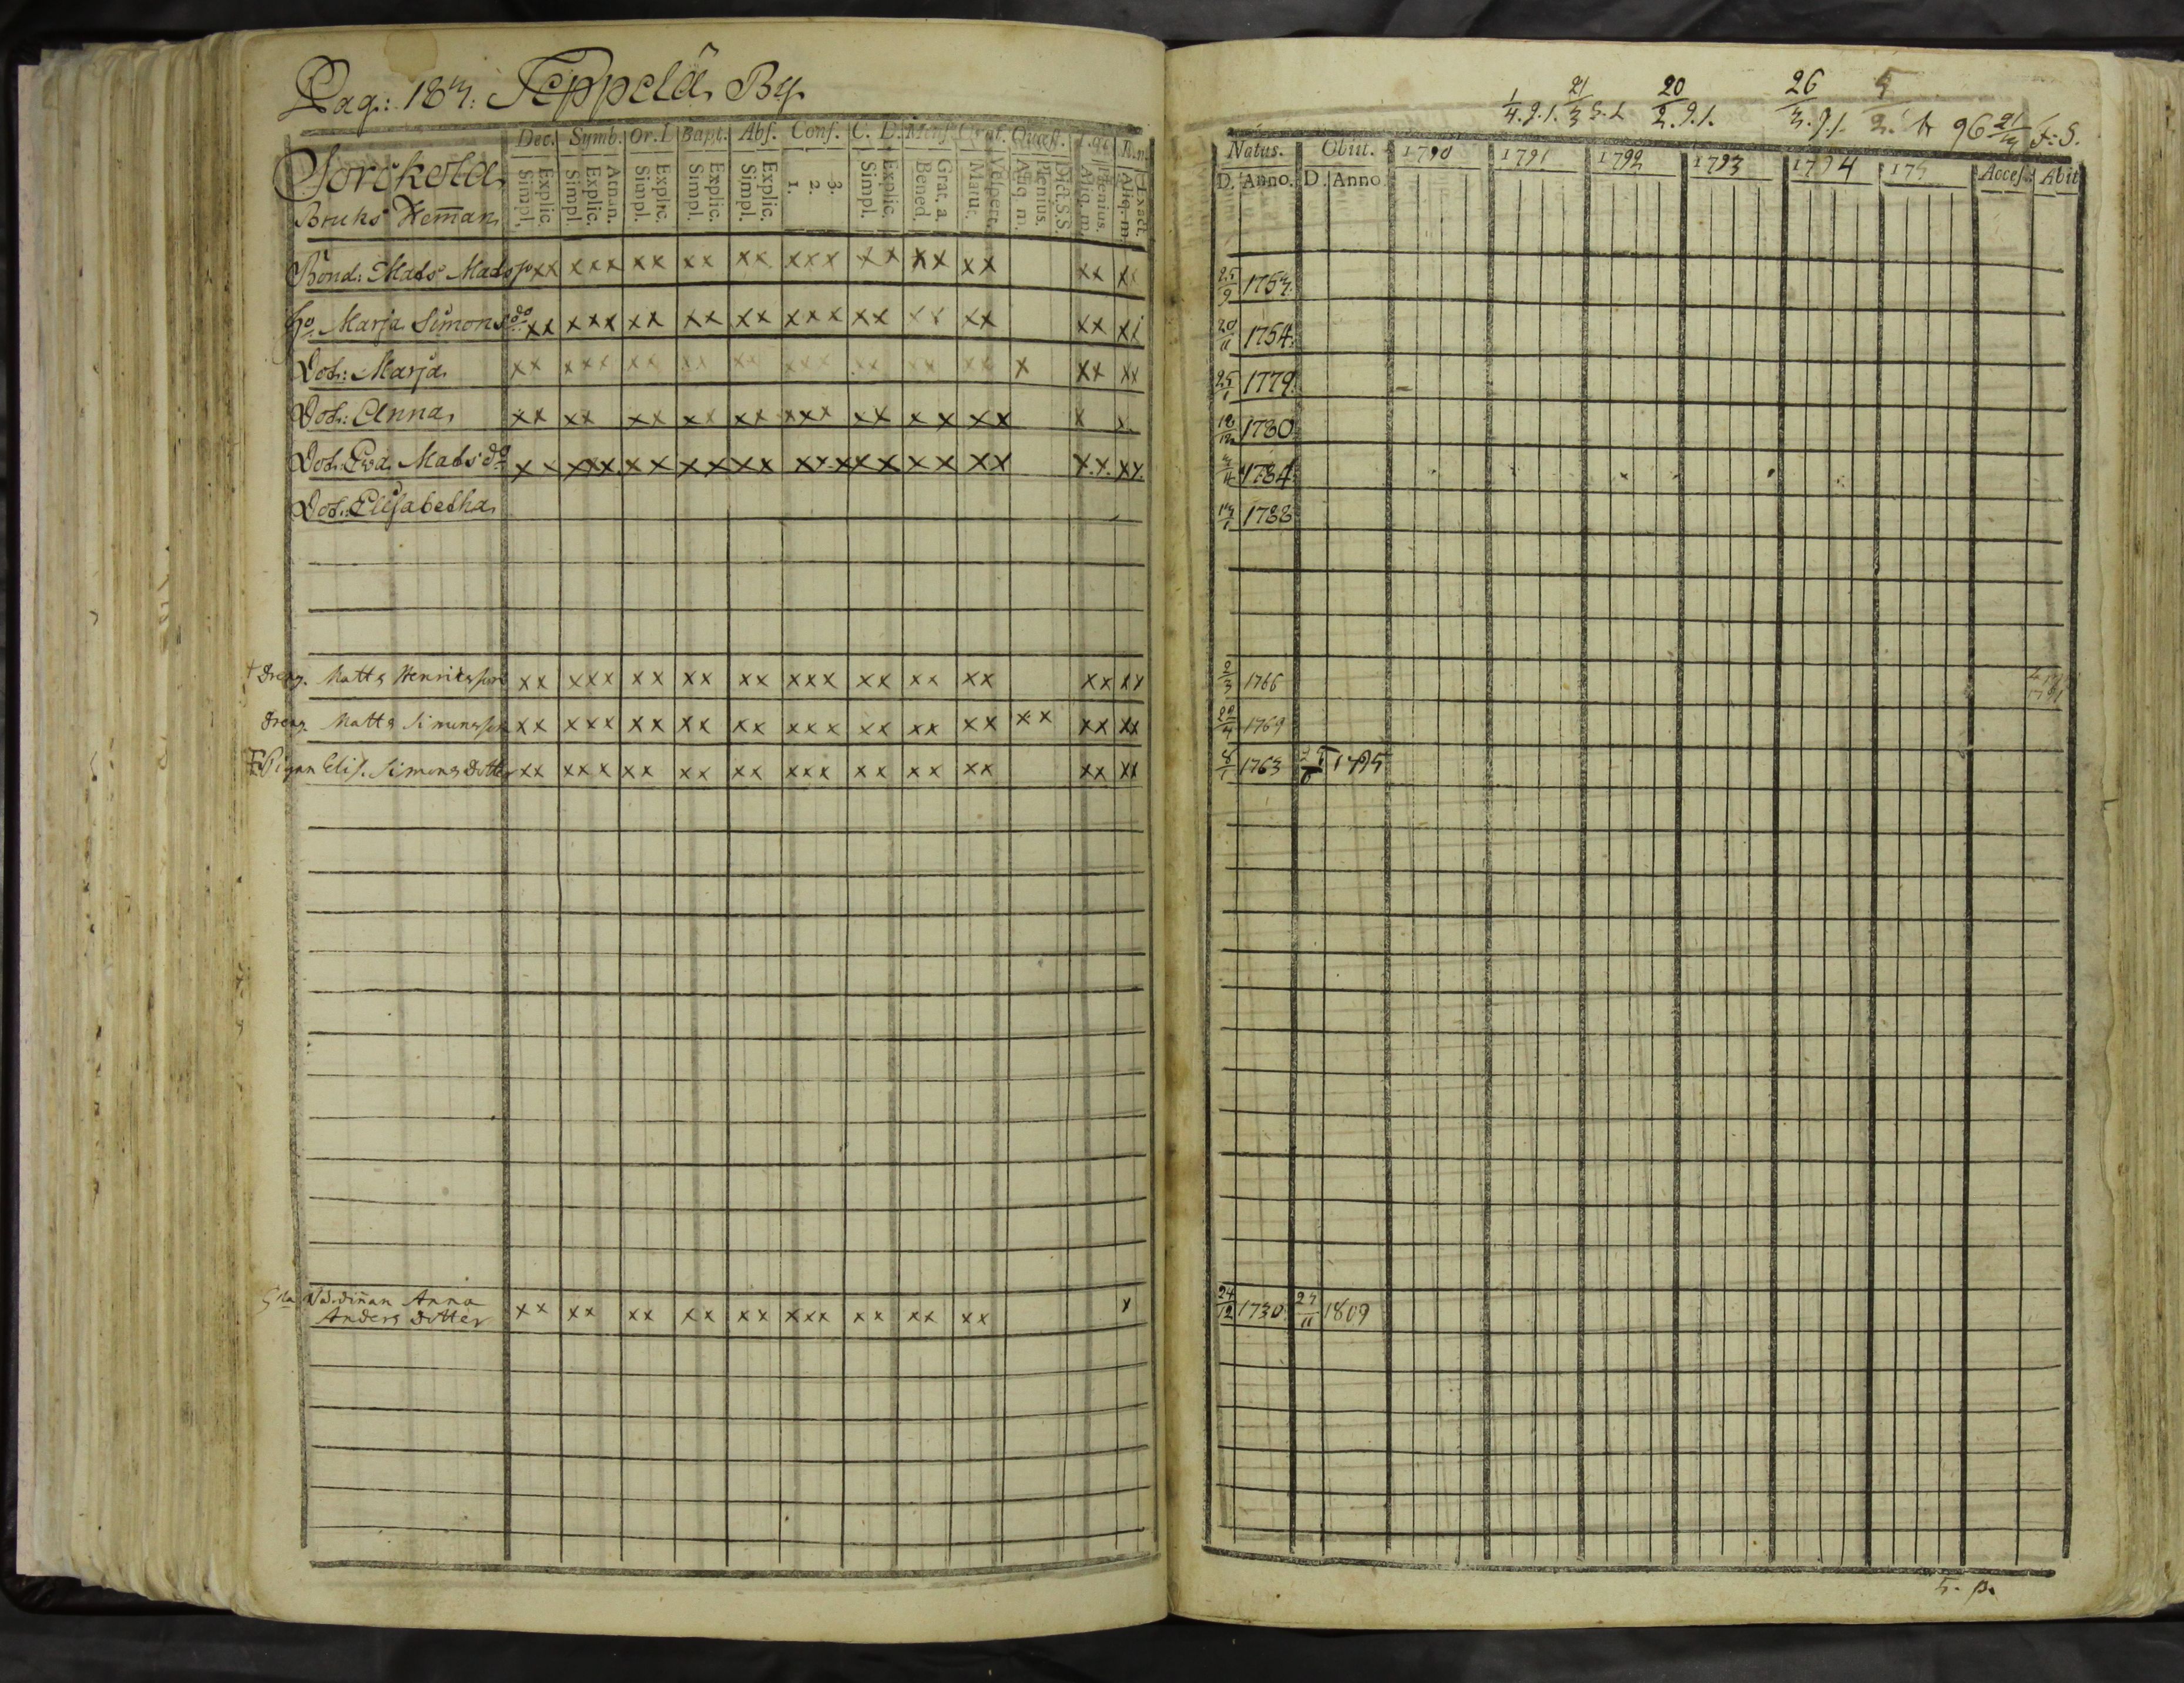 Pag: 183. Teppelä By
Dec. Symb. Or. D Bapt. Abs. Conf. C. D. Mens. Grat. Quæst.
Explic. Simpl. Atnan. Explic. Simpl. Explic. Simpl. Explic. Simpl. Explic. Simpl. 3. 2. 1. Explic. Simpl. Grat. a. Bened. Vespert. Matut. Dict. S.S. Plenius. Aliq. m. Plenius. Aliq. m. Exact. Aliq. m.
Bruks Hem̅an
Bond: Mats Mats p xx xxx xx xx xx xxx xx xx xx xx xx
ho Marja Simons do xx xxx xx xx xx xxx xx xx xx xx xx
Dot: Marja xx xxx xx xx xx xxx xx xx xx x xx xx
Dot: Anna xx xx xx xx xx xxx xx xx xx x x
Dot: Eva Mats do xx xxx xx xx xx xxx xx xx xx xx xx
Dot: Elisabetha
+ Dreng. Matts Henriksson xx xxx xx xx xx xxx xx xx xx xx xx
Dreng. Matts Simonsson xx xxx xx xx xx xxx xx xx xx xx xx xx
Pigan Elis. Simons Dotter xx xxx xx xx xx xxx xx xx xx xx xx
Anna
Anders Dotter xx xx xx xx xx xxx xx xx xx x
1/4. 9. 1. 21/3 20/2. 9. 1. 26/3. 9. 1. 5/2. 96 21/3 F: S.
Natus. Obiit. 1790 1791 1792 1793 1794 179 Acces. Abit
D. Anno. D. Anno
25/9 1753.
20/11 1754.
25/1 1779.
18/12 1780
3/4 1784
13/1 1788
2/3 1766
1769
8/1 1763 1795
24/12 1730 27/11 1809